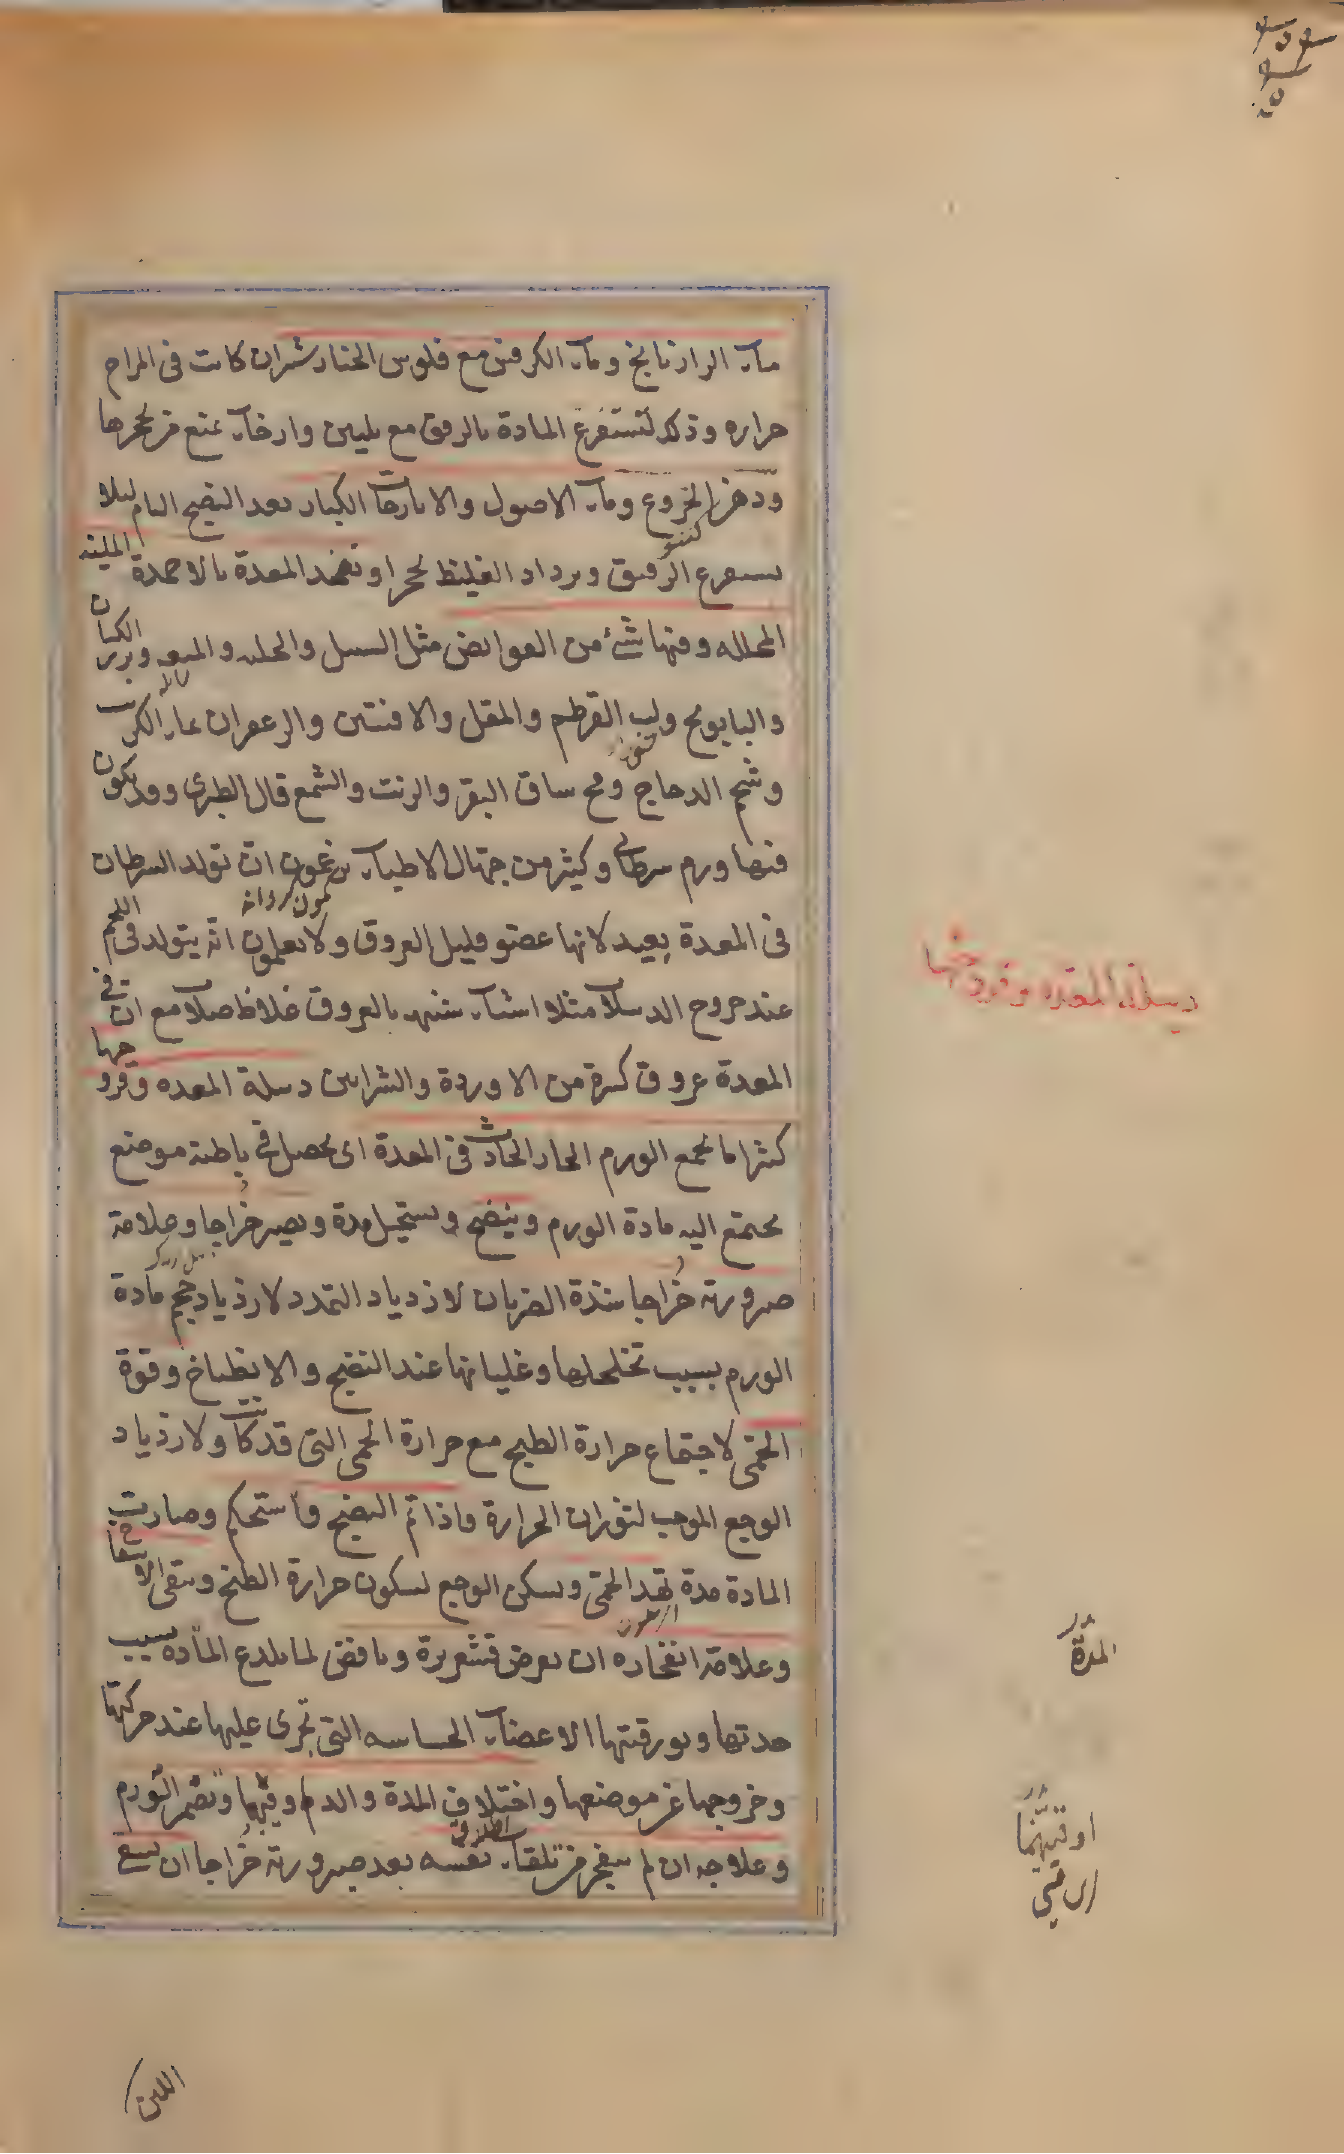 ماء الرازيانج وماء الكرفس مع فلوس الخيارشنبر ان كانت فى المزاج
حرارة وذلك لتستفرغ المادة بالرفق مع تليين وارخاء يمنع من تحجرها
ودهن الخروع وماء الاصول والايارجات الكبار بعد النضج التام لئلا
يستفرغ الرقيق ويزداد الغليظ تحجرا وتضمد المعدة بالاضمدة الملينة
المحللة وفيها شئ من القوابض مثل السنبل والحلبة والميعة وبزر الكتان
والبابونج ولب القرطم والمقل والافسنتين والزعفران بماء الكرنب
وشحم الدجاج ومخ ساق البقر والزيت والشمع قال الطبرى وقد يكون
فيها ورم سرطانى وكثير من جهال الاطباء يزعمون ان تولد السرطان
فى المعدة بعيد لانها عضو قليل العروق ولا يعلمون انه يتولد فى اللحم
عند خروج الدبيلات مثلا اشياء شبيهه بالعروق غلاظ صلاب مع ان فى
المعدة عروق كثيرة من الاوردة والشرايين دبيلة المعده وقروحها
كثيرا ما يجمع الورم الحار الحادث فى المعدة اى يحصل فى باطنه موضع
يجتمع اليه مادة الورم وينضج ويستحيل مدة ويصير خراجا وعلامة
صيرورته خراجا شدة الضربان لازدياد التمدد لازدياد حجم مادة
الورم بسبب تخلخلها وغليانها عند النضج والانطباخ وقوة
الحمى لاجتماع حرارة الطبخ مع حرارة الحمى التى قد كانت ولازدياد
الوجع الموجب لثوران الحرارة واذا تم النضج واستحكم وصارت
المادة مدة تهدا الحمى ويسكن الوجع لسكون حرارة الطبخ ويبقى الانتفاخ
وعلامة انفجاره ان يعرض قشعريرة ونافض لما يلدع المادة بسبب
حدتها وبورقيتها الاعضاء الحساسه التى تجرى عليها عند حركتها
وخروجها عن موضعها واختلاف المدة والدم او قيئهما وتضمر الورم
وعلاجه ان لم ينفجر من تلقاء نفسه بعد صيرورته خراجا ان يسقى
دبيلة المعده وقروحها
المدة
او قيئهما
اى قئ
اللبن